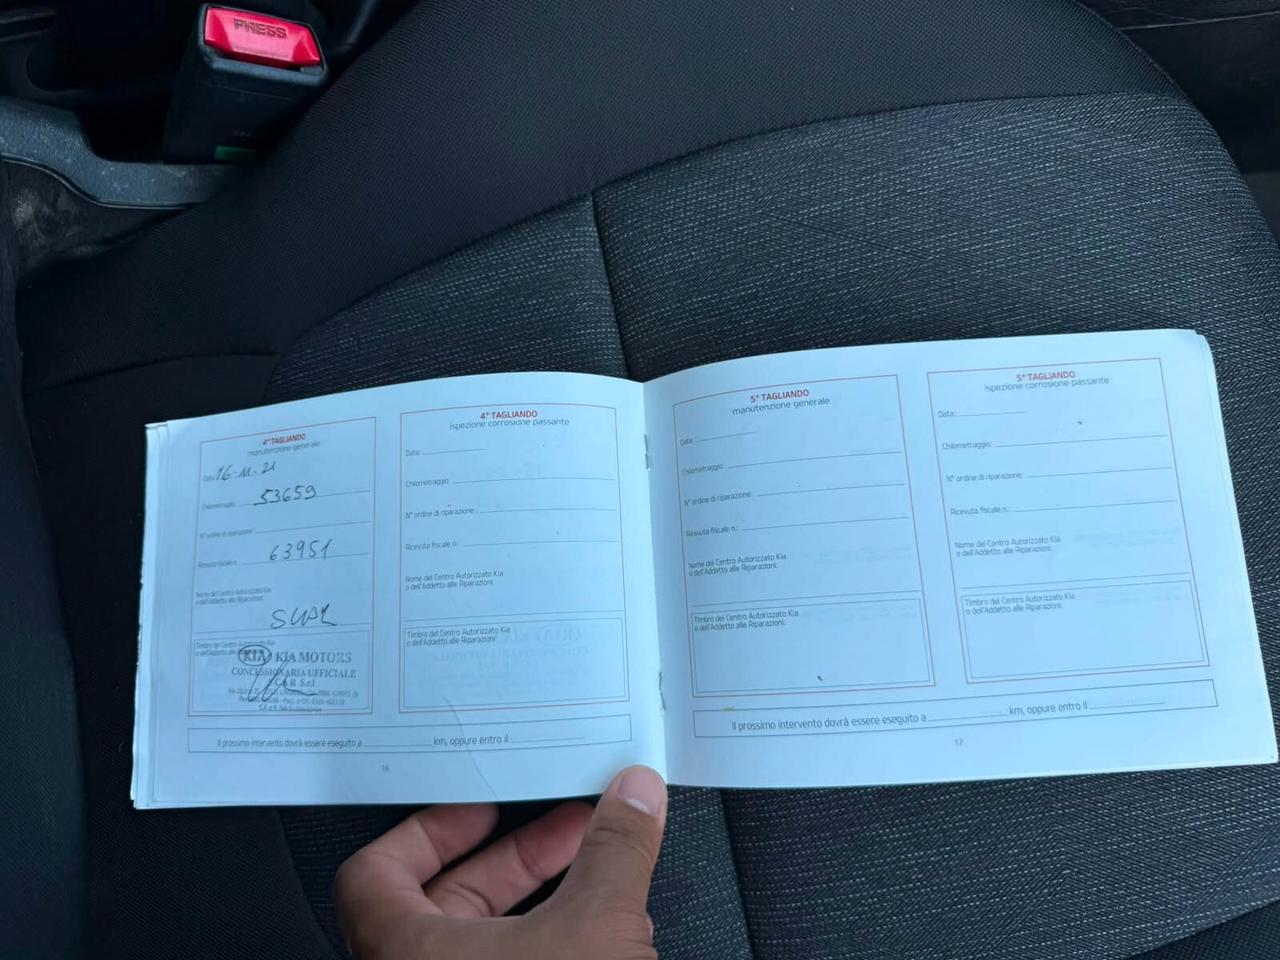 PRESS
4° TAGLIANDO
manutenzione generale
Data: 16-11-21
Chilometraggio: 53659
N° ordine di riparazione:
Ricevuta fiscale n.: 63951
Nome del Centro Autorizzato Kia
o dell'Addetto alle Riparazioni:
Timbro del Centro Autorizzato Kia
o dell'Addetto alle Riparazioni:
KIA KIA MOTORS
CONCESSIONARIA UFFICIALE
SCAR S.r.l
4° TAGLIANDO
ispezione corrosione passante
Data:
Chilometraggio:
N° ordine di riparazione:
Ricevuta fiscale n.:
Nome del Centro Autorizzato Kia
o dell'Addetto alle Riparazioni:
Timbro del Centro Autorizzato Kia
o dell'Addetto alle Riparazioni:
Il prossimo intervento dovrà essere eseguito a km, oppure entro il
16
5° TAGLIANDO
manutenzione generale
Data:
Chilometraggio:
N° ordine di riparazione:
Ricevuta fiscale n.:
Nome del Centro Autorizzato Kia
o dell'Addetto alle Riparazioni:
Timbro del Centro Autorizzato Kia
o dell'Addetto alle Riparazioni:
5° TAGLIANDO
ispezione corrosione passante
Data:
Chilometraggio:
N° ordine di riparazione:
Ricevuta fiscale n.:
Nome del Centro Autorizzato Kia
o dell'Addetto alle Riparazioni:
Timbro del Centro Autorizzato Kia
o dell'Addetto alle Riparazioni:
Il prossimo intervento dovrà essere eseguito a km, oppure entro il
17